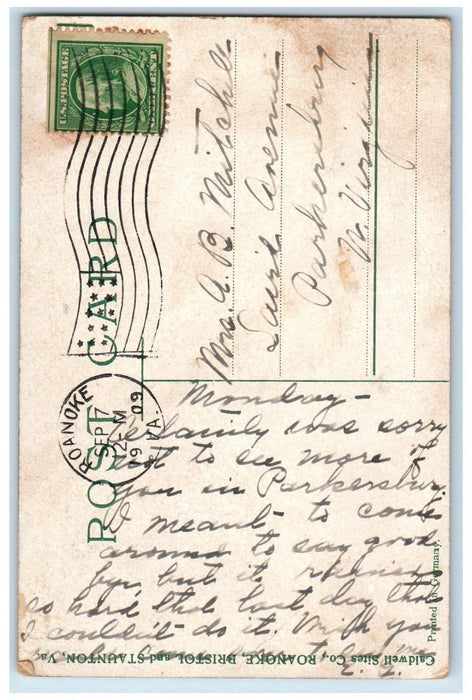 U.S. POSTAGE
POST CARD
ROANOKE
SEP 7
12-M
1909
VA.
Mrs. A. B. Mitchell
Laird Avenue
Parkersburg
W. Virginia
Monday-
Certainly was sorry
not to see more of
you in Parkersburg
I meant to come
around to say good
bye, but it rained
so hard that last day that
I couldn't do it. Wish you
Caldwell Sites Co., ROANOKE, BRISTOL and STAUNTON, Va.
Printed in Germany.